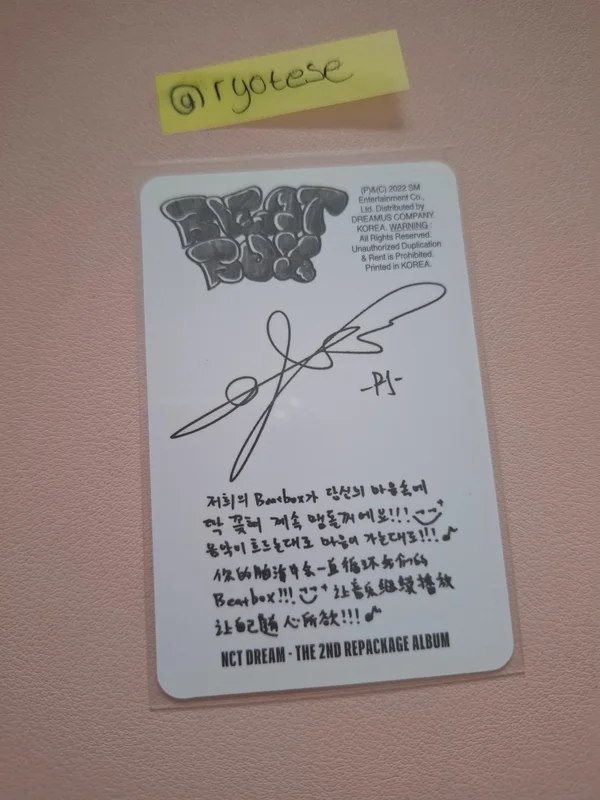 @ryotese
BEAT
BOX
(P)&(C) 2022 SM
Entertainment Co.,
Ltd. Distributed by
DREAMUS COMPANY.
KOREA. WARNING :
All Rights Reserved.
Unauthorized Duplication
& Rent is Prohibited.
Printed in KOREA.
-PJ-
저희의 Beatbox가 당신의 마음속에
딱 꽂혀 계속 맴돌꺼에요!!!
음악이 흐르는대로 마음이 가는대로!!!
你的脑海中会一直循环我们的
Beatbox!!! 让音乐继续播放
让自己随心所欲!!!
NCT DREAM - THE 2ND REPACKAGE ALBUM